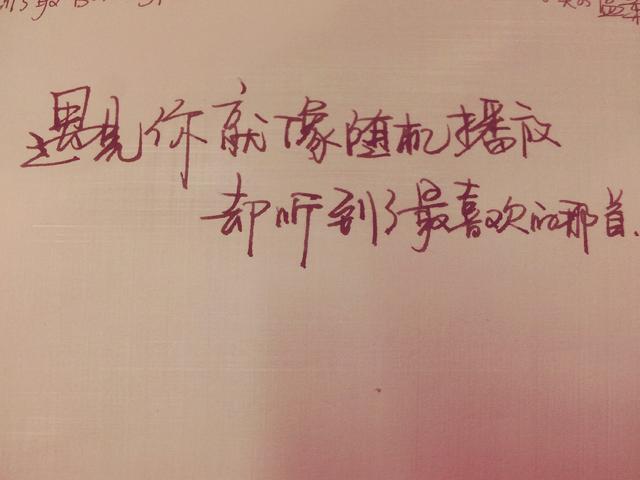 遇见你就像随机播放
却听到了最喜欢的那首.